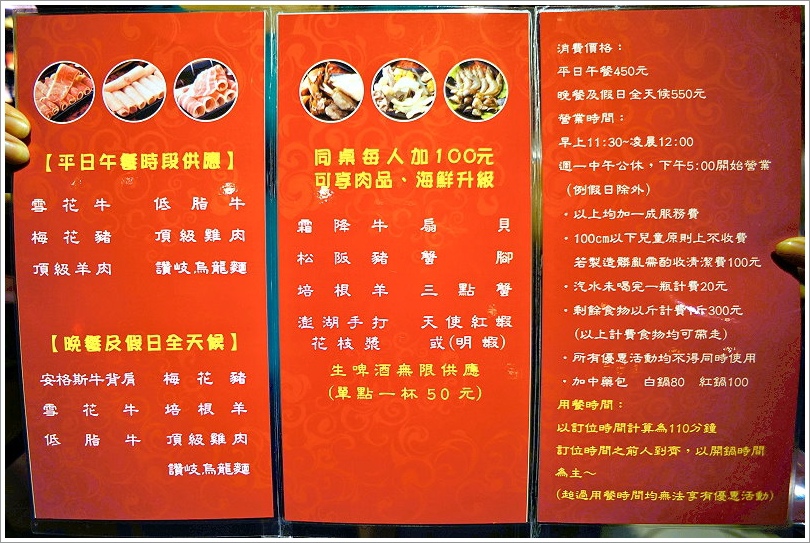 【平日午餐時段供應】
雪花牛 低脂牛
梅花豬 頂級雞肉
頂級羊肉 讚岐烏龍麵
【晚餐及假日全天候】
安格斯牛背肩 梅花豬
雪花牛 培根羊
低脂牛 頂級雞肉
讚岐烏龍麵
同桌每人加100元
可享肉品、海鮮升級
霜降牛 扇貝
松阪豬 蟹腳
培根羊 三點蟹
澎湖手打 天使紅蝦
花枝漿 或(明蝦)
生啤酒無限供應
(單點一杯50元)
消費價格：
平日午餐450元
晚餐及假日全天候550元
營業時間：
早上11:30~凌晨12:00
週一中午公休，下午5:00開始營業
(例假日除外)
·以上均加一成服務費
·100cm以下兒童原則上不收費
若製造髒亂需酌收清潔費100元
·汽水未喝完一瓶計費20元
·剩餘食物以斤計費1斤300元
(以上計費食物均可帶走)
·所有優惠活動均不得同時使用
·加中藥包 白鍋80 紅鍋100
用餐時間：
以訂位時間計算為110分鐘
訂位時間之前人到齊，以開鍋時間
為主～
(超過用餐時間均無法享有優惠活動)